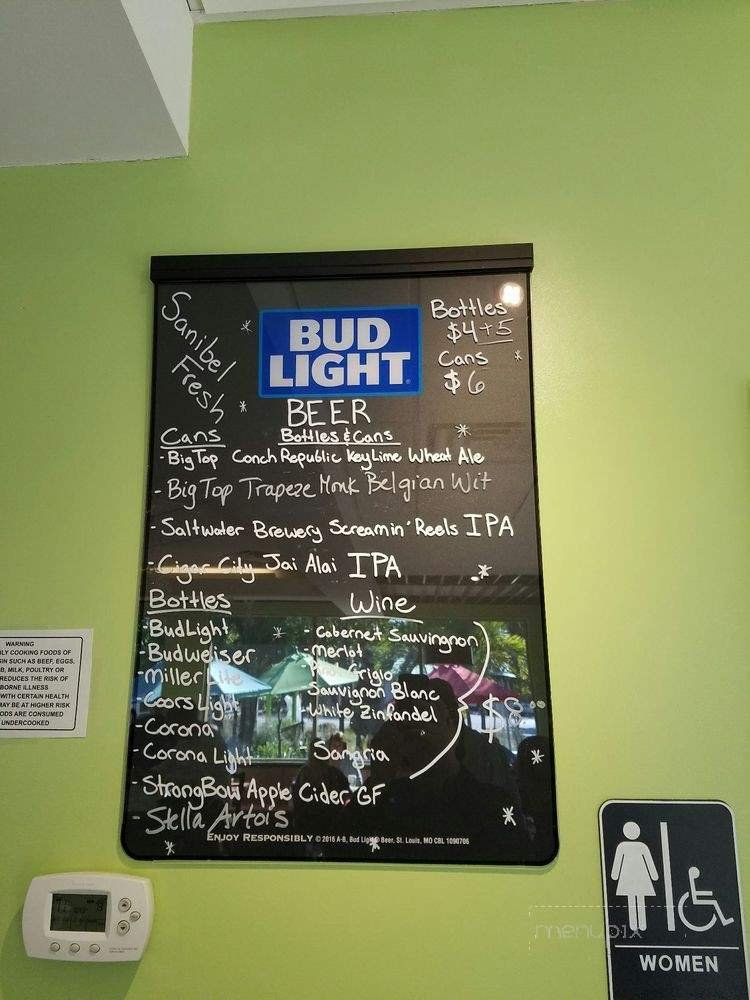 Sanibel
Fresh
BUD
LIGHT
Bottles
$4+5
Cans
$6
BEER
Bottles & Cans
Cans
- Big Top Conch Republic Key Lime Wheat Ale
- Big Top Trapeze Monk Belgian Wit
- Saltwater Brewery Screamin' Reels IPA
- Cigar City Jai Alai IPA
Bottles
- Bud Light
- Budweiser
- Miller Lite
- Coors Light
- Corona
- Corona Light
- StrongBow Apple Cider GF
- Stella Artois
Wine
- Cabernet Sauvingnon
- Merlot
- Pinot Grigio
- Sauvignon Blanc
- White Zinfandel
- Sangria
$8
ENJOY RESPONSIBLY © 2016 A-B, Bud Light® Beer, St. Louis, MO CBL 1090706
WARNING
LY COOKING FOODS OF
GIN SUCH AS BEEF, EGGS,
B, MILK, POULTRY OR
REDUCES THE RISK OF
BORNE ILLNESS
WITH CERTAIN HEALTH
MAY BE AT HIGHER RISK
ODS ARE CONSUMED
UNDERCOOKED
WOMEN
menupix